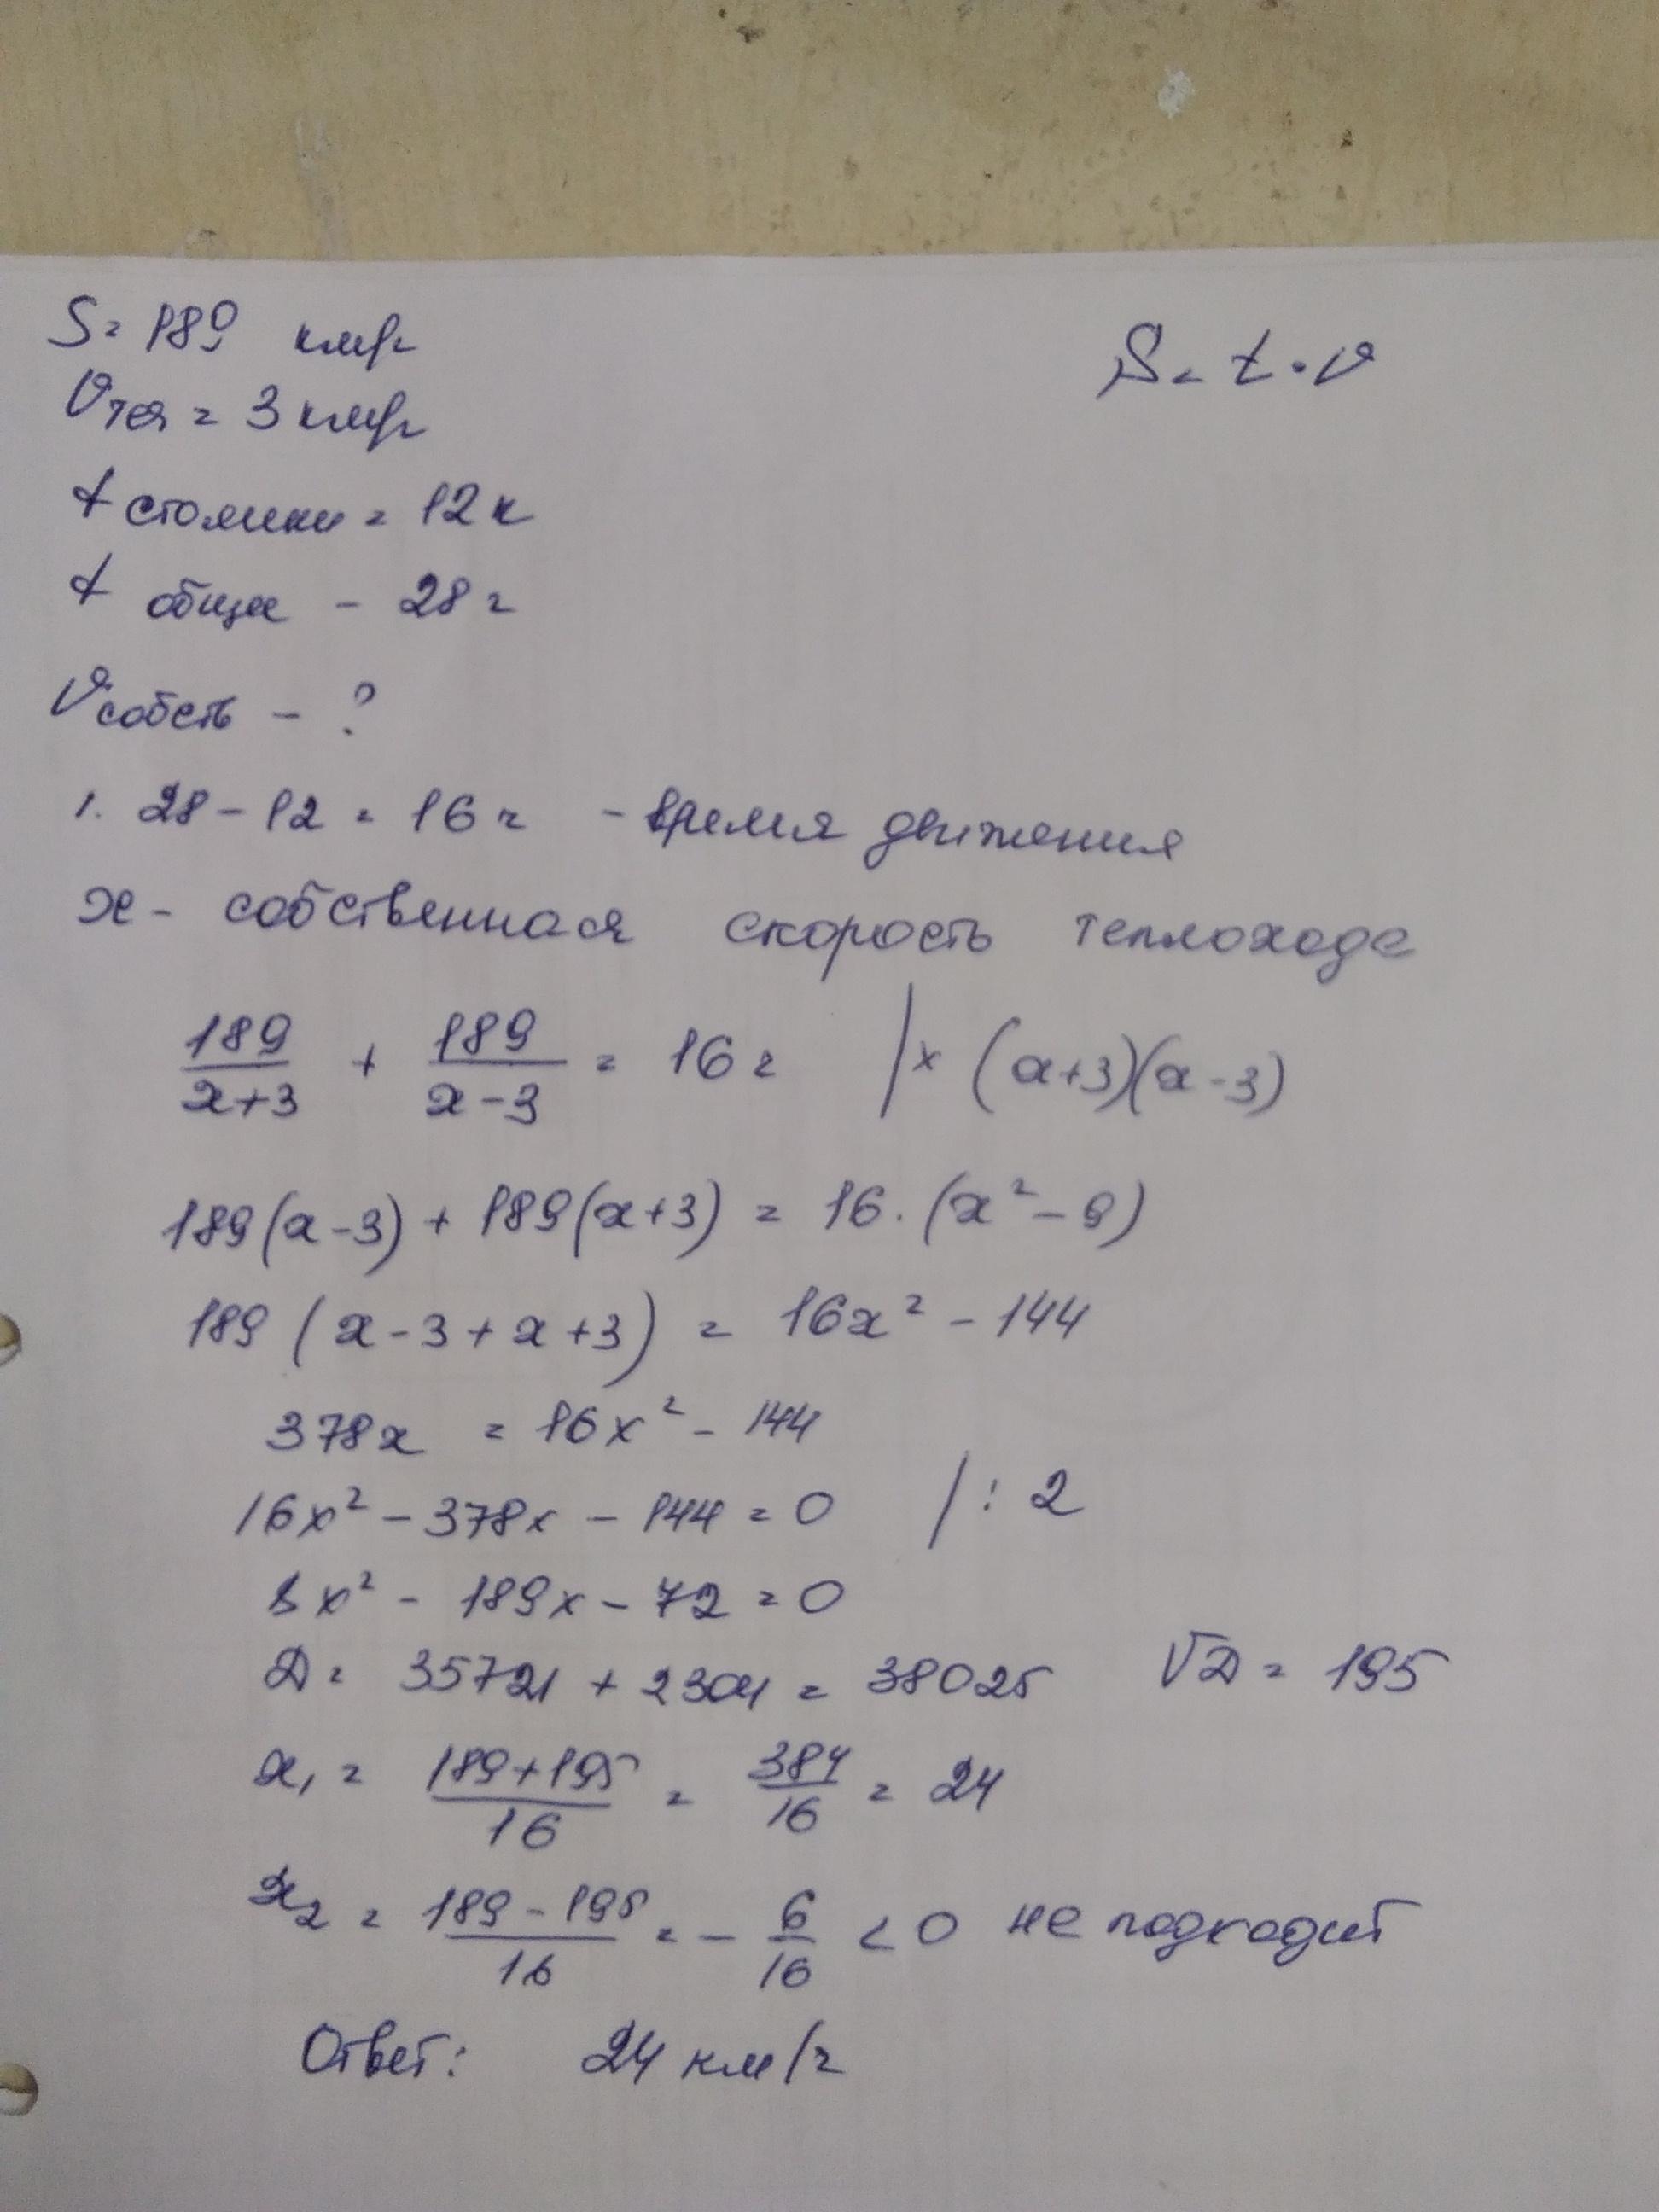 S = 189 км/ч
S = t · v
v теч = 3 км/ч
t стоянки = 12 ч
t общее - 28 ч
v собств - ?
1. 28 - 12 = 16 ч - время движения
x - собственная скорость теплохода
189/(x+3) + 189/(x-3) = 16 ч | × (x+3)(x-3)
189(x-3) + 189(x+3) = 16 · (x² - 9)
189 (x - 3 + x + 3) = 16x² - 144
378x = 16x² - 144
16x² - 378x - 144 = 0 | : 2
8x² - 189x - 72 = 0
D = 35721 + 2304 = 38025 √D = 195
x₁ = (189+195)/16 = 384/16 = 24
x₂ = (189-195)/16 = - 6/16 < 0 не подходит
Ответ: 24 км/ч